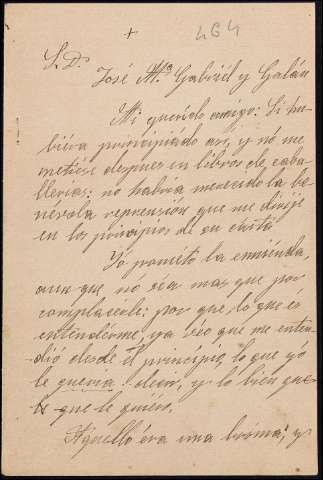 + 464
S. D.
José Mª Gabriél y Galán
Mi querido amigo: Si hu-
biéra principiádo así, y nó me
metiése despues en libros de caba-
llerías: no habría merecido la be-
névola reprensión que me dirije
en los principios de su carta
Yo prométo la enmiénda,
aun que nó séa mas que por
complacérle: por que lo que és
entendérme, ya véo que me enten-
dió desde el principio, lo que yó
le queria decir, y lo bien que
que le quiéro.
Aquello éra una bróma, y